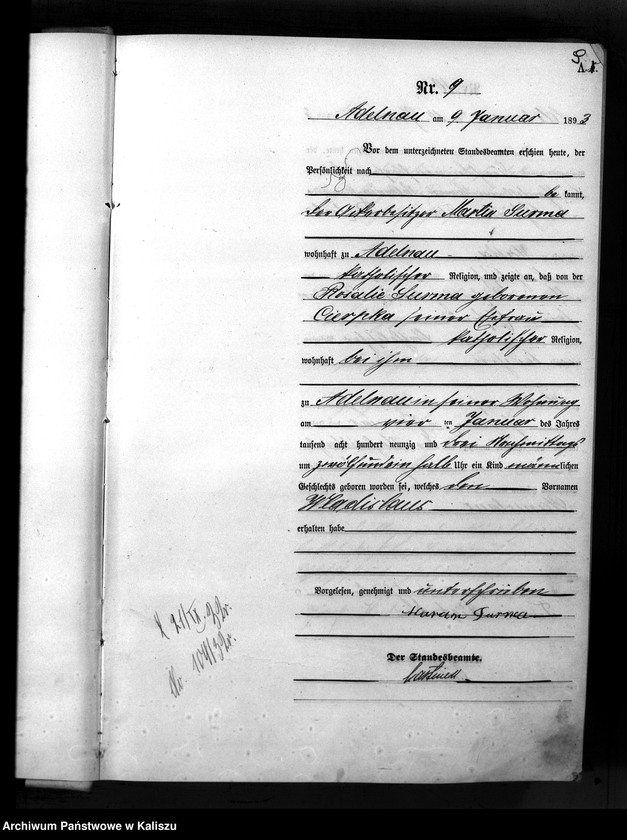 9
Nr. 9
Adelnau am 9 Januar 1893
Vor dem unterzeichneten Standesbeamten erschien heute, der
Persönlichkeit nach
be kannt,
der Ackerbesitzer Martin Surma
wohnhaft zu Adelnau
katholischer Religion, und zeigte an, daß von der
Rosalie Surma geborenen
Cierpka seiner Ehefrau
katholischer Religion,
wohnhaft bei ihm
zu Adelnau in seiner Wohnung
am vier ten Januar des Jahres
tausend acht hundert neunzig und drei Nachmittags
um zwölf und ein halb Uhr ein Kind männlichen
Geschlechts geboren worden sei, welches den Vornamen
Wladislaus
erhalten habe
Vorgelesen, genehmigt und unterschrieben
Surma
Der Standesbeamte.
Archiwum Państwowe w Kaliszu